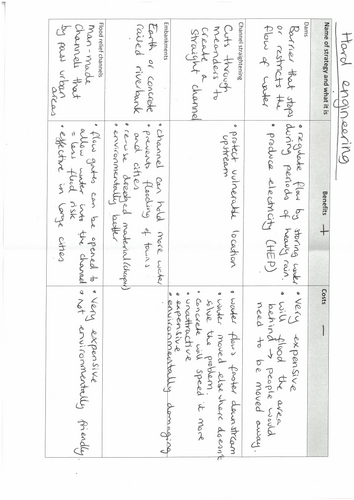 Hard engineering
Name of strategy and what it is
Benefits +
Costs -
Dams
Barrier that stops
or restricts the
flow of water
• regulate flow by storing water
during periods of heavy rain.
• produce electricity (HEP)
• Very expensive
• will flood the area
behind → people would
need to be moved away.
Channel straightening
Cuts through
meanders to
create a
straight channel
• protect vulnerable location
upstream
• water flows faster downstream
• water moved elsewhere doesn't
solve the problem;
• concrete will speed it more
• unattractive
• expensive
• environmentally damaging
Embankments
Earth or concrete
raised riverbank
• channel can hold more water
• prevents flooding of towns
and cities
• re-use dredged material (cheaper)
• environmentally better
Flood relief channels
Man-made
channels that
by pass urban
areas
• flow gates can be opened to
allow water into the channel
= less flood risk
• effective in large cities
• Very expensive
• not environmentally friendly.